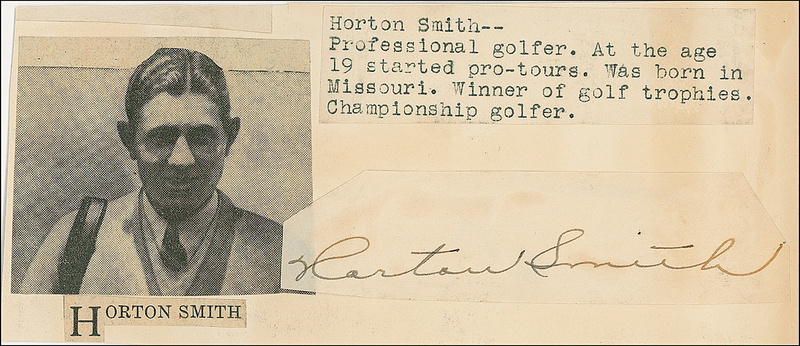 Horton Smith--
Professional golfer. At the age
19 started pro-tours. Was born in
Missouri. Winner of golf trophies.
Championship golfer.
Horton Smith
HORTON SMITH